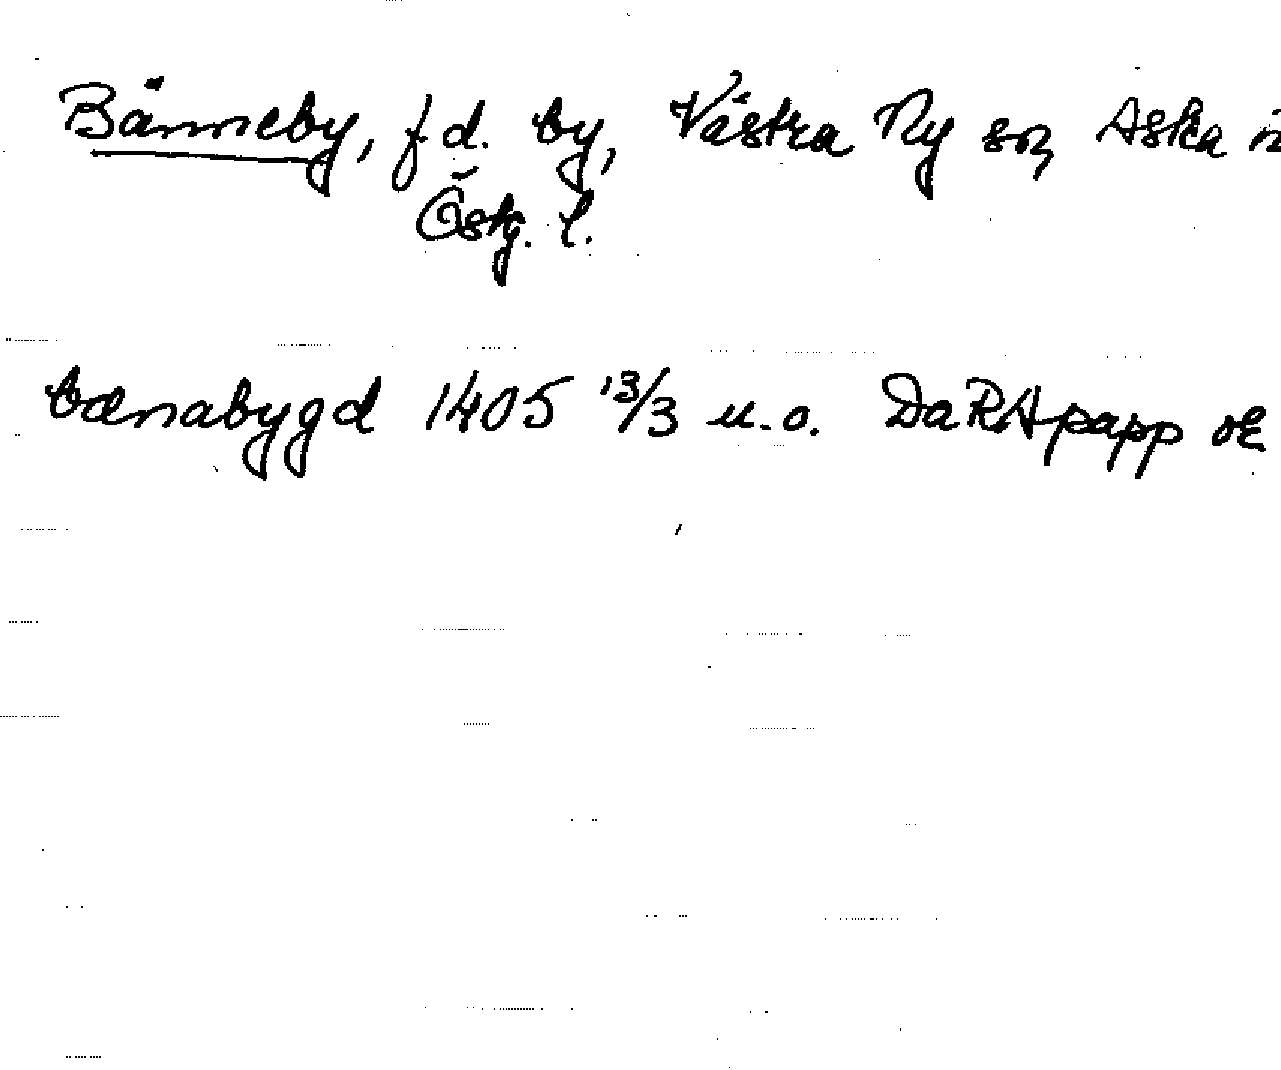 Bänneby, f d. by, Västra Ny sn, Aska
Östg. l.
bænabygd 1405 13/3 u.o. DaRApapp or